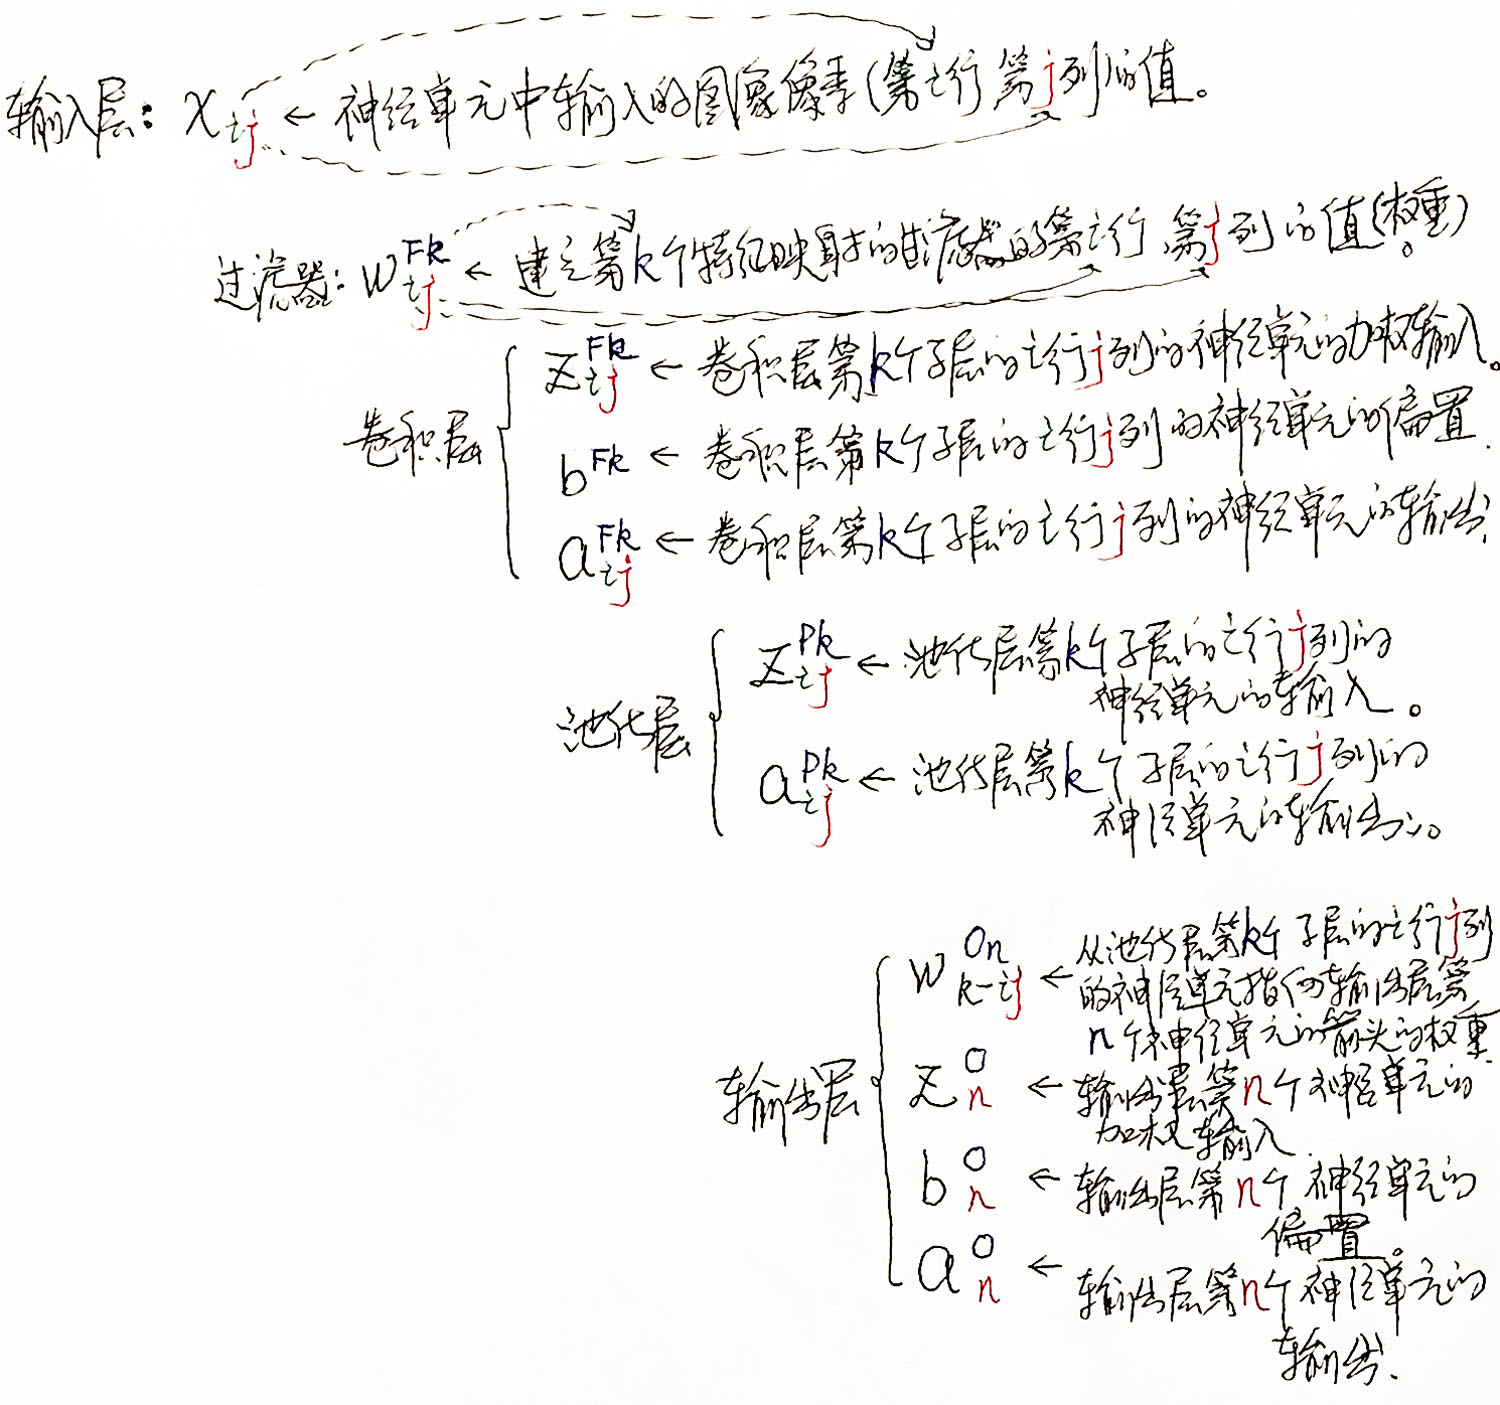 输入层: x_ij ← 神经单元中输入的图像像素(第i行第j列)的值。
过滤器: w^Fk_ij ← 建立第k个特征映射的过滤器的第i行第j列的值(权重)。
卷积层
z^Fk_ij ← 卷积层第k个子层的i行j列的神经单元的加权输入。
b^Fk ← 卷积层第k个子层的i行j列的神经单元的偏置.
a^Fk_ij ← 卷积层第k个子层的i行j列的神经单元的输出.
池化层
z^Pk_ij ← 池化层第k个子层的i行j列的
神经单元的输入。
a^Pk_ij ← 池化层第k个子层的i行j列的
神经单元的输出。
输出层
w^On_k-ij ← 从池化层第k个子层的i行j列
的神经单元指向输出层第
n个神经单元的箭头的权重.
z^O_n ← 输出层第n个神经单元的
加权输入.
b^O_n ← 输出层第n个神经单元的
偏置。
a^O_n ← 输出层第n个神经单元的
输出.